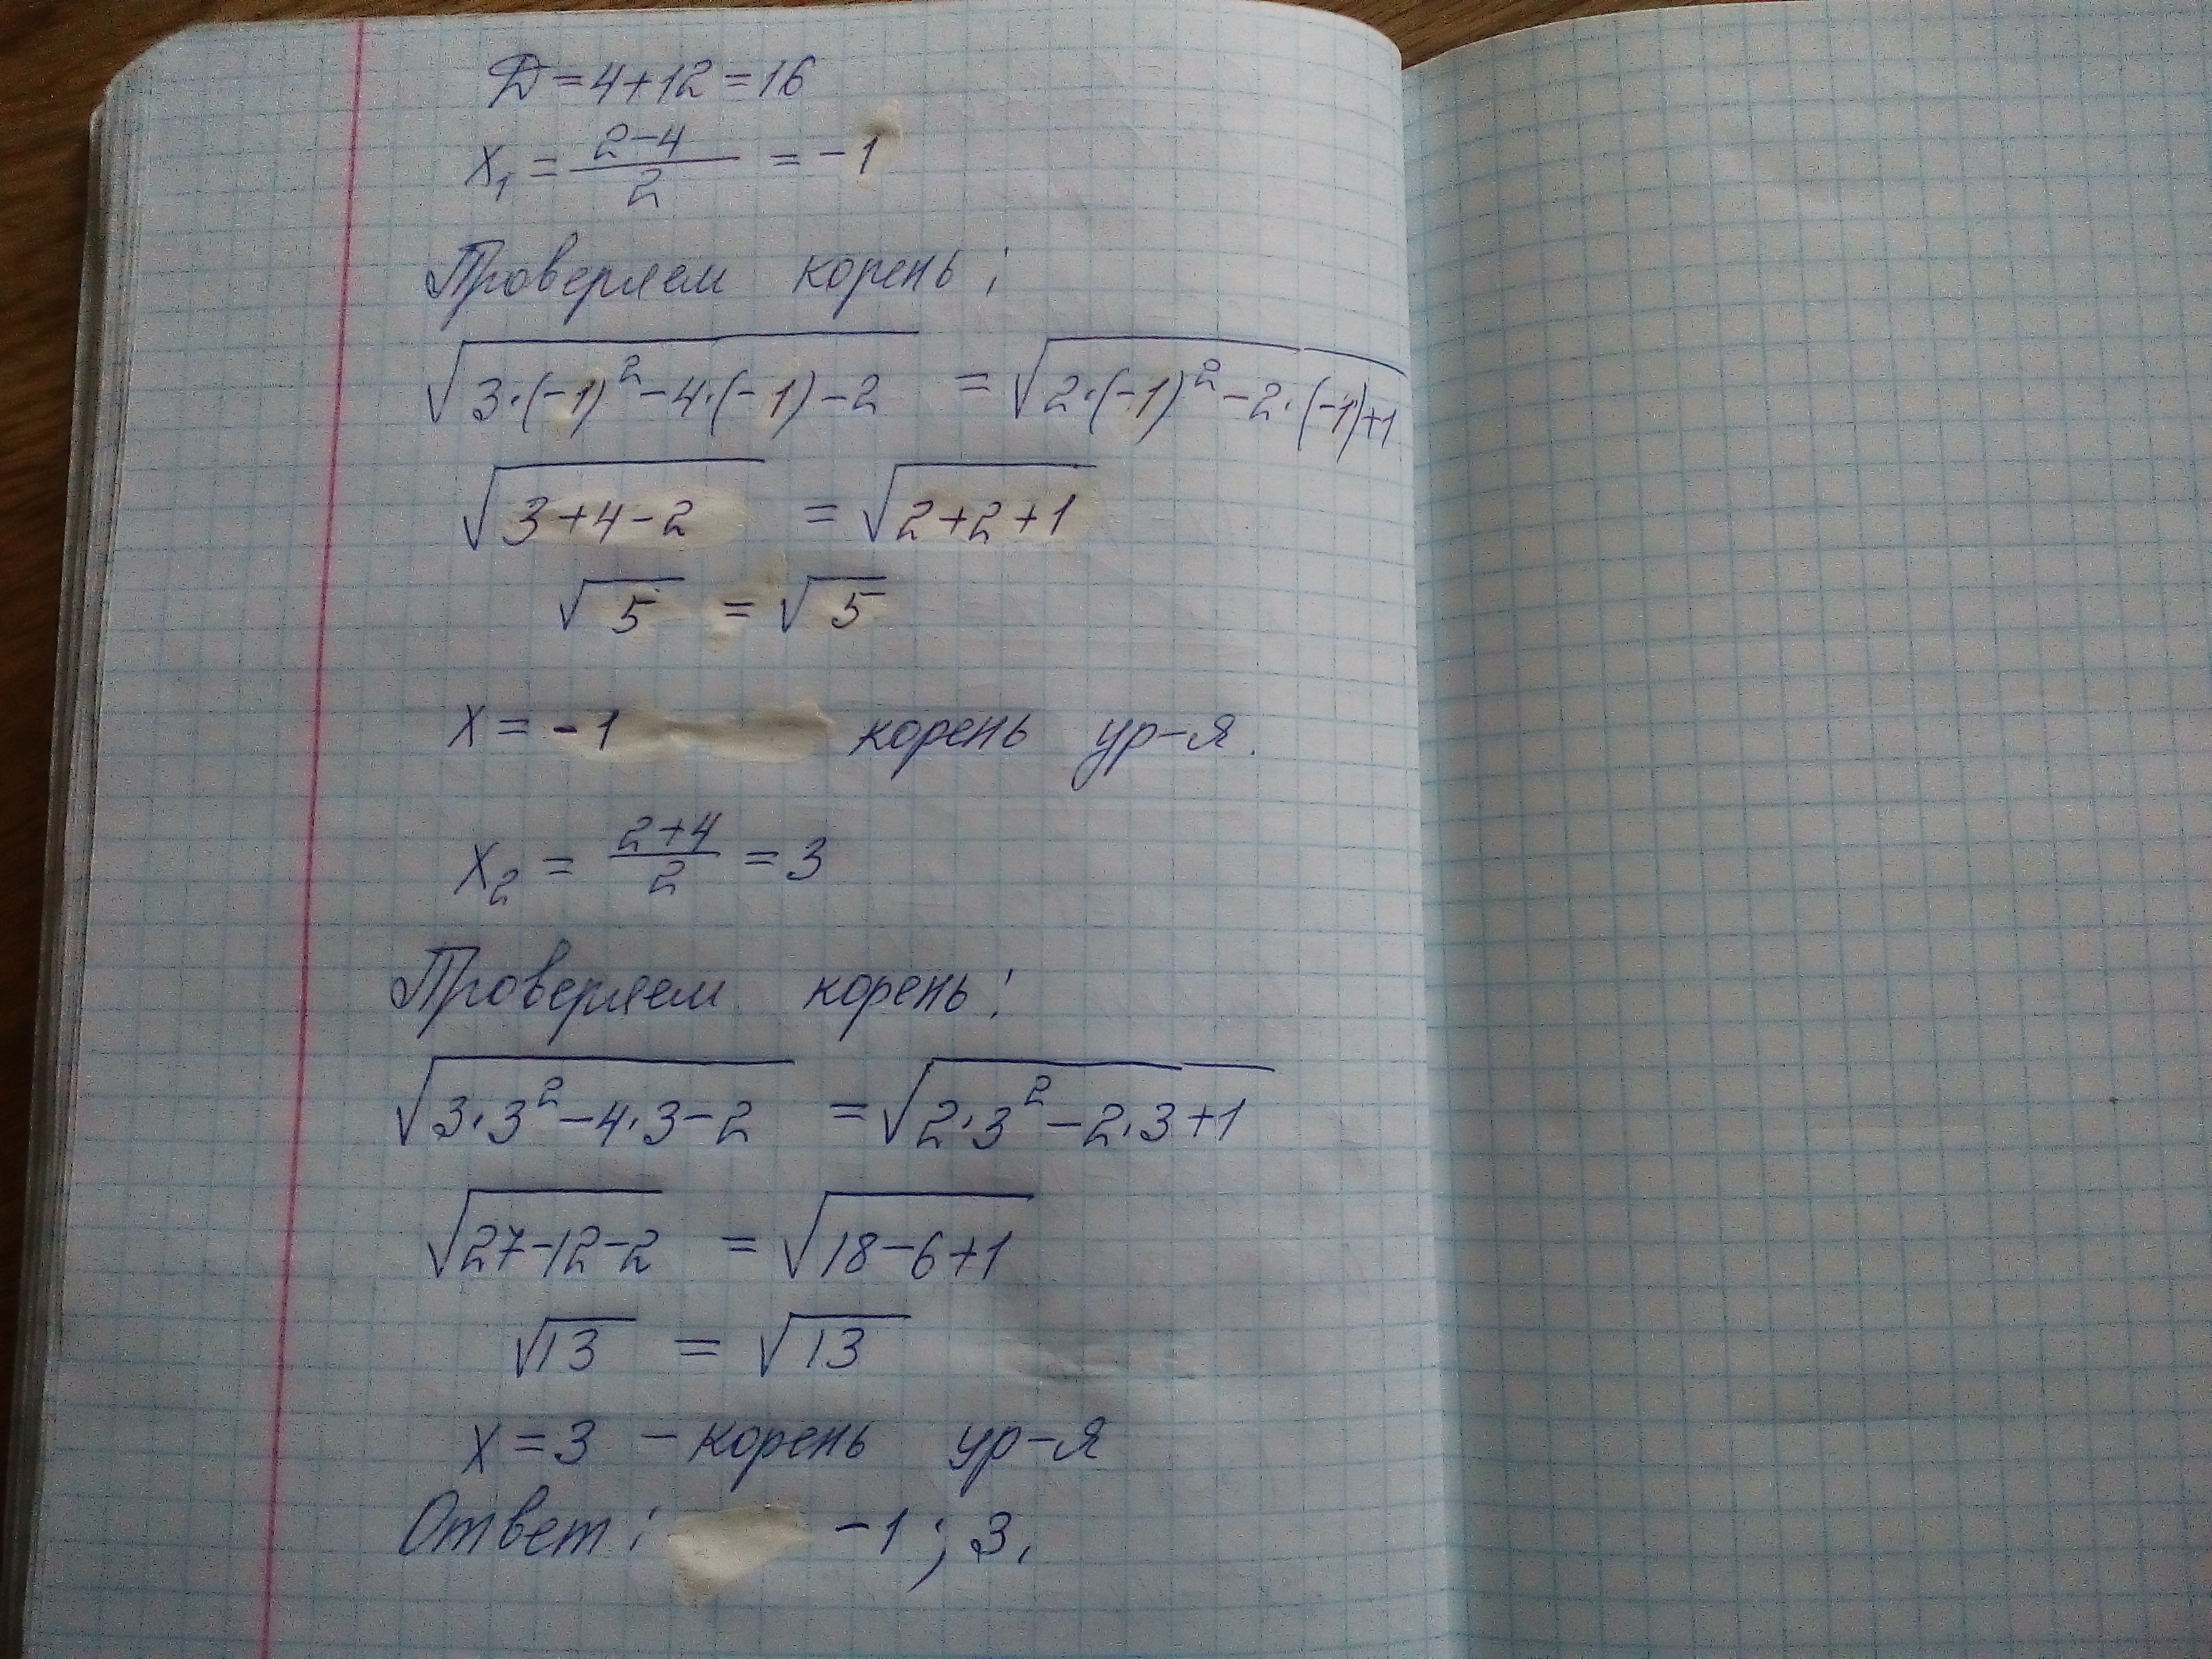 Д = 4+12 = 16
x₁ = (2-4)/2 = -1
Проверяем корень:
√(3·(-1)²-4·(-1)-2) = √(2·(-1)²-2·(-1)+1)
√(3+4-2) = √(2+2+1)
√5 = √5
x = -1 корень ур-я.
x₂ = (2+4)/2 = 3
Проверяем корень:
√(3·3²-4·3-2) = √(2·3²-2·3+1)
√(27-12-2) = √(18-6+1)
√13 = √13
x = 3 - корень ур-я
Ответ: -1; 3.